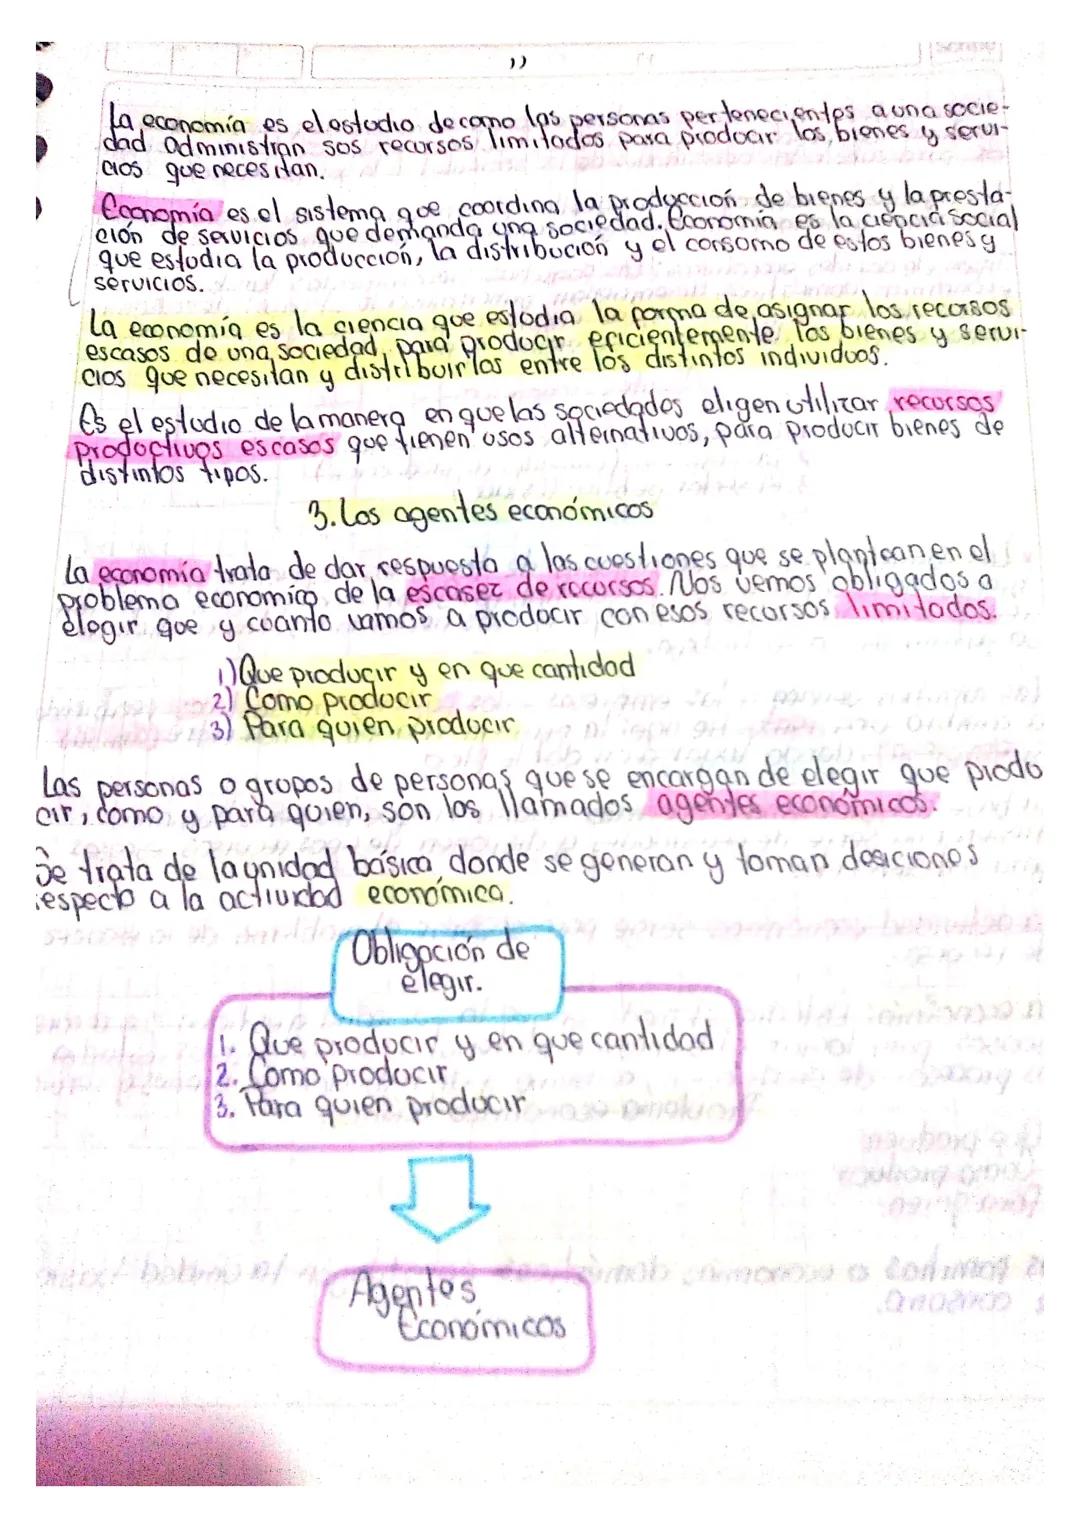 La economía es el estudio de como las personas pertenecientes a una socie-
dad administran sos recorsos limitados para producir los bienes y servi-
cios que necesitan.
Economía es el sistema que coordina la producción de bienes y la presta-
ción de servicios que demanda una sociedad. Economía es la ciencia social
que estudia la producción, la distribución y el consomo de estos bienes y
servicios.
La economía es la ciencia que estudia la forma de asignar los recorsos
escasos de una sociedad para producir eficientemente los bienes y servi-
cios que necesitan y distribuirlos entre los distintos individuos.
Es el estudio de la manera en que las sociedades eligen utilizar recorsos
productivos escasos que tienen usos alternativos, para producir bienes de
distintos tipos.
3. Los agentes económicos
La economía trata de dar respuesta a las cuestiones que se plantean en el
problema economico de la escasez de recorsos. Nos vemos obligados a
elegir que y cuanto vamos a producir con esos recorsos limitados.
1) Que producir y en que cantidad
2) Como producir
3) Para quien producir
Las personas o grupos de personas que se encargan de elegir que produ
cir, como y para quien, son los llamados agentes económicos.
Se trata de la unidad básica donde se generan y toman desiciones
respecto a la actividad económica.
Obligación de
elegir.
1. Que producir y en que cantidad
2. Como producir
3. Para quien producir
Agentes
Económicos